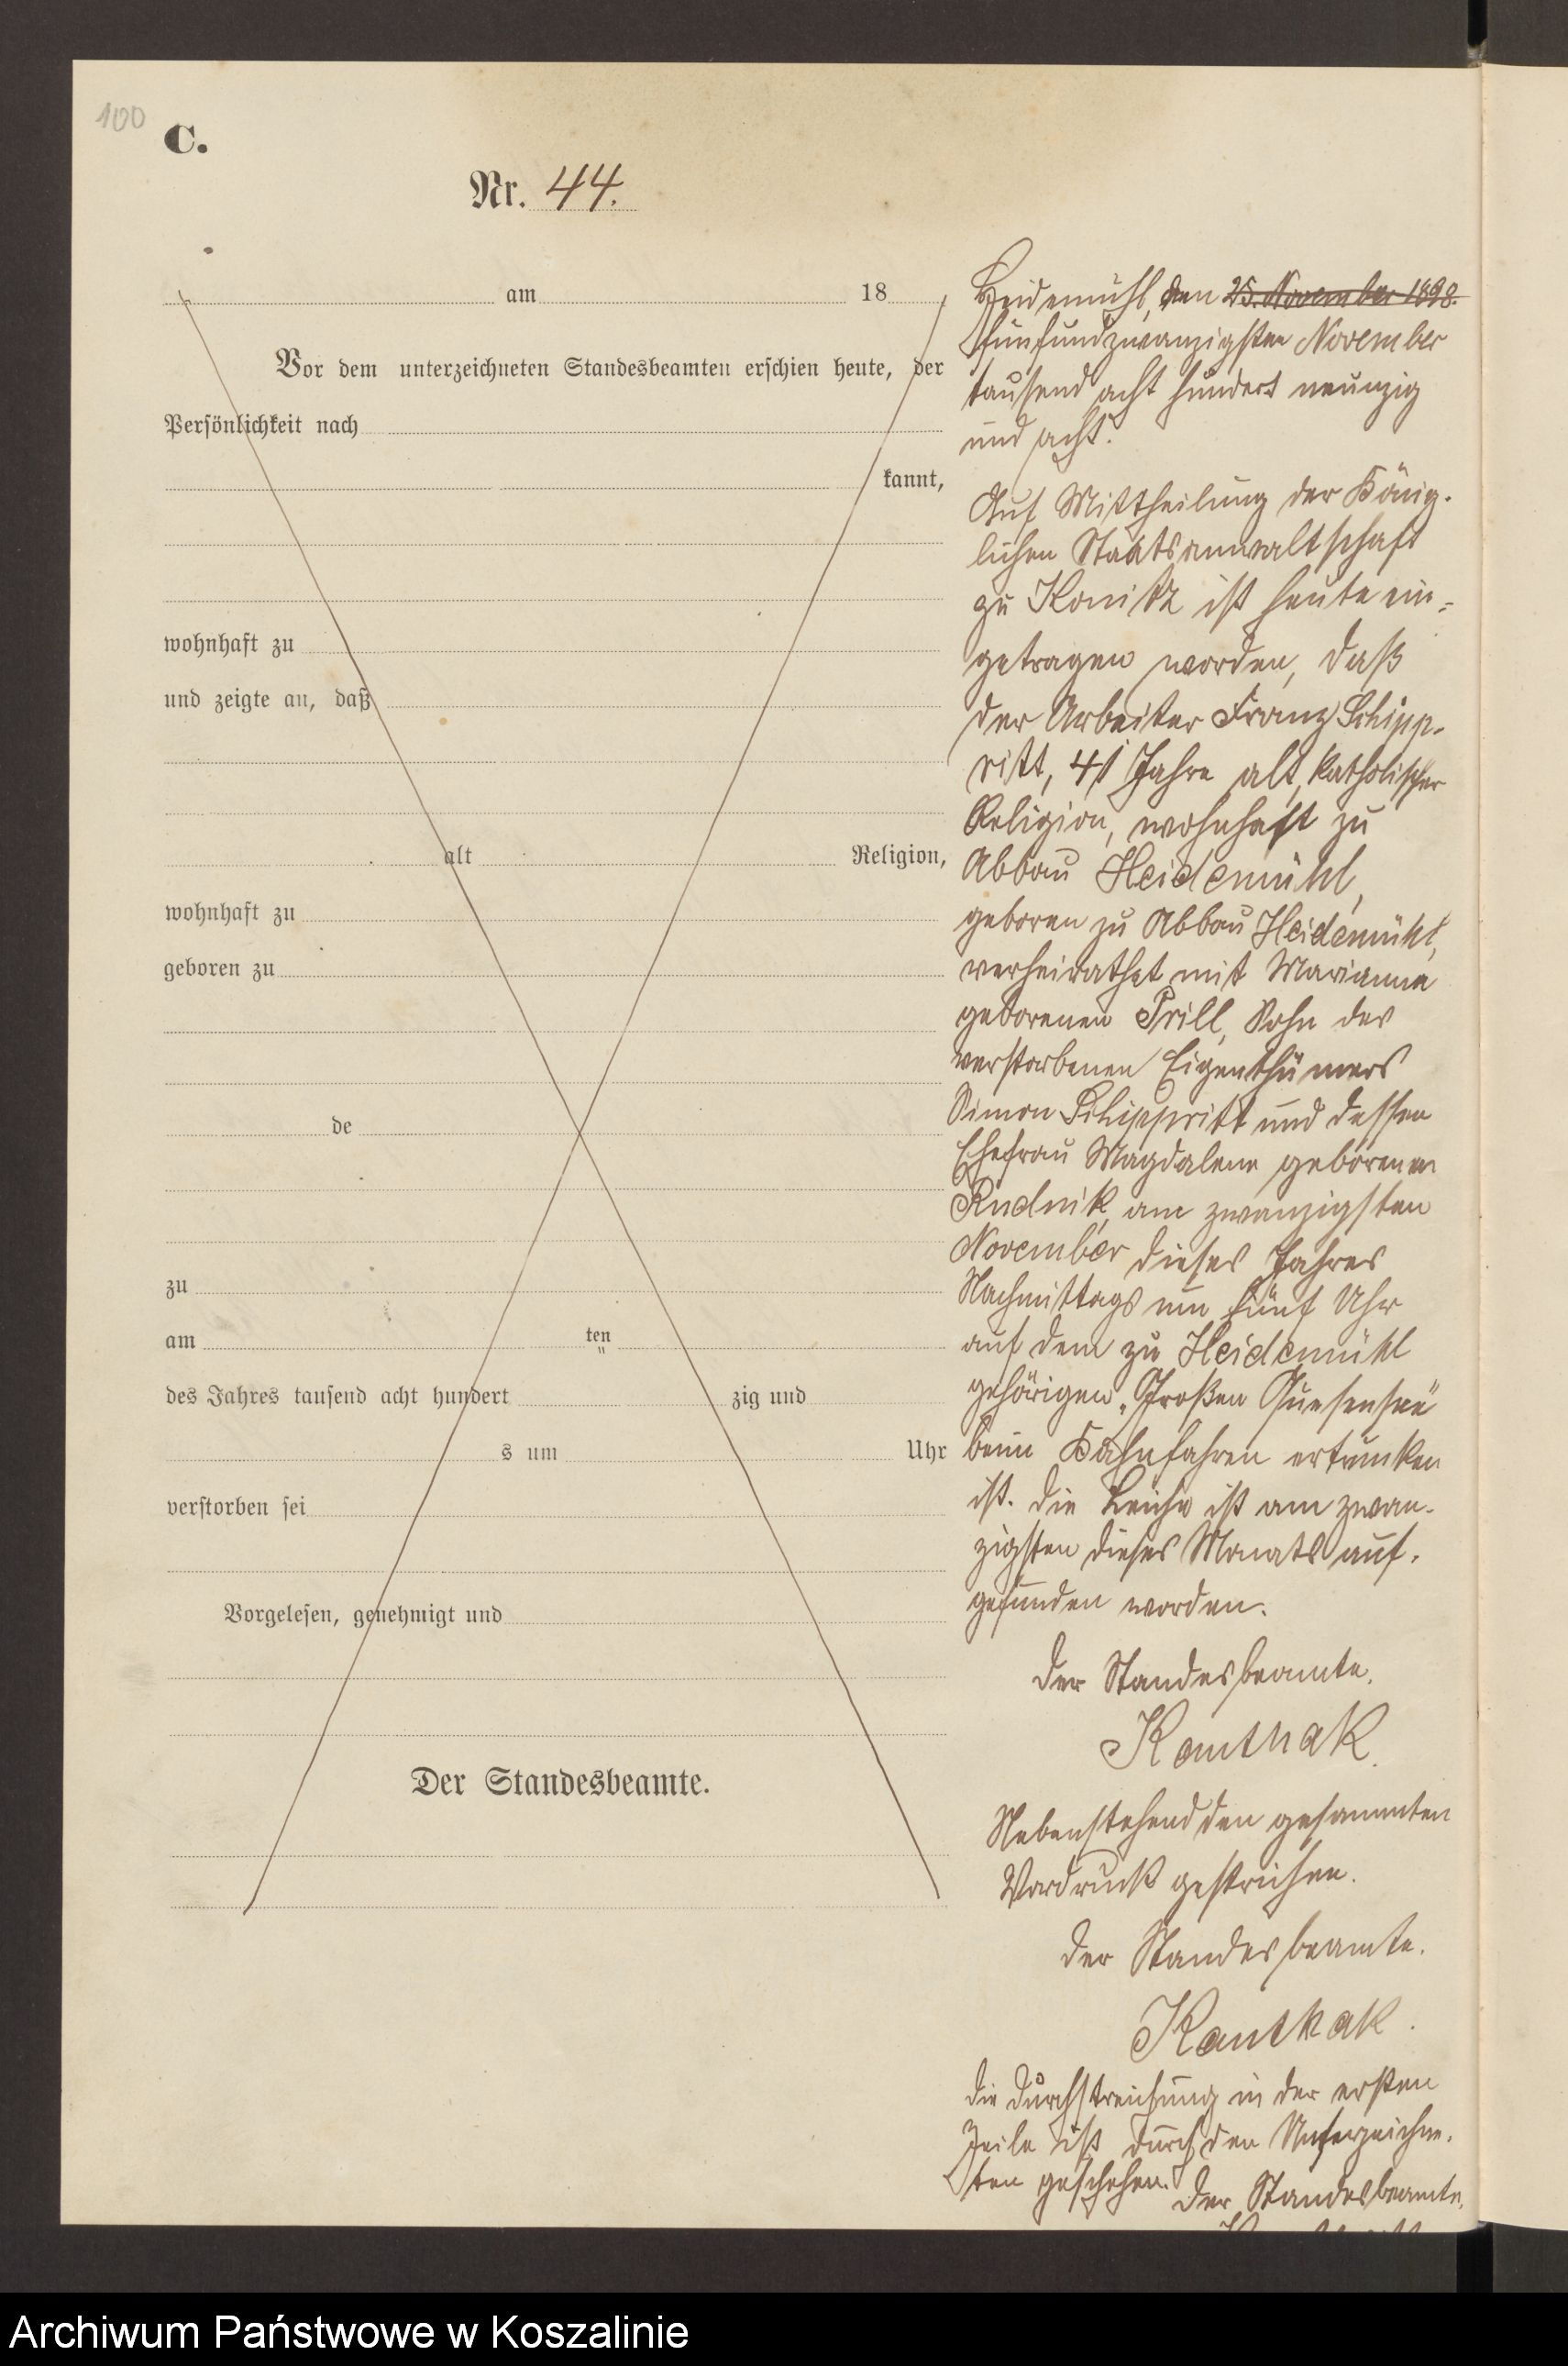 100
C.
Nr. 44.
am 18
Vor dem unterzeichneten Standesbeamten erschien heute, der
Persönlichkeit nach
kannt,
wohnhaft zu
und zeigte an, daß
alt Religion,
wohnhaft zu
geboren zu
de
zu
am ten
des Jahres tausend acht hundert zig und
s um Uhr
verstorben sei
Vorgelesen, genehmigt und
Der Standesbeamte.
Heidemühl, den 25. November 1898.
fünfundzwanzigsten November
tausend acht hundert neunzig
und acht.
Auf Mittheilung der König-
lichen Staatsanwaltschaft
zu Konitz ist heute ein-
getragen worden, daß
der Arbeiter Franz Schipp-
ritt, 41 Jahre alt, katholischer
Religion, wohnhaft zu
Abbau Heidemühl,
geboren zu Abbau Heidemühl,
verheirathet mit Marianna
geborenen Prill, Sohn des
verstorbenen Eigenthümers
Simon Schippritt und dessen
Ehefrau Magdalene geborenen
Rudnik, am zwanzigsten
November dieses Jahres
Nachmittags um fünf Uhr
auf dem zu Heidemühl
gehörigen „Großen
beim Kahnfahren ertrunken
ist. Die Leiche ist am zwan-
zigsten dieses Monats auf-
gefunden worden.
Der Standesbeamte.
Kanthak.
Nebenstehend den gesammten
Vordruck gestrichen.
Der Standesbeamte.
Kanthak.
Die Durchstreichung in der ersten
Zeile ist durch den Unterzeichne-
ten geschehen.
Der Standesbeamte.
Archiwum Państwowe w Koszalinie